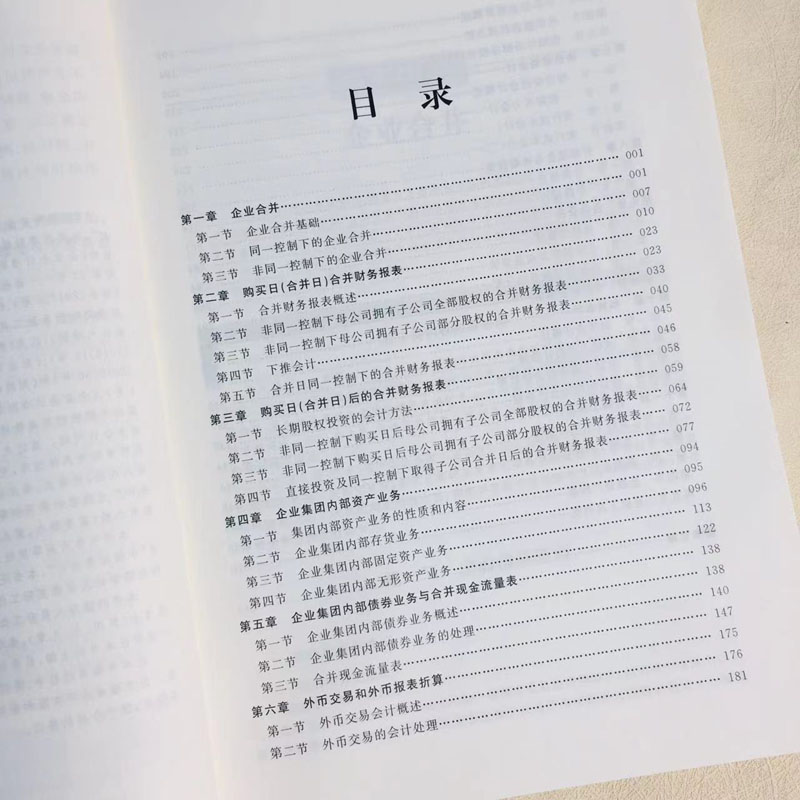 目 录
第一章 企业合并 …… 001
第一节 企业合并基础 …… 001
第二节 同一控制下的企业合并 …… 007
第三节 非同一控制下的企业合并 …… 010
第二章 购买日(合并日)合并财务报表 …… 023
第一节 合并财务报表概述 …… 023
第二节 非同一控制下母公司拥有子公司全部股权的合并财务报表 …… 033
第三节 非同一控制下母公司拥有子公司部分股权的合并财务报表 …… 040
第四节 下推会计 …… 045
第五节 合并日同一控制下的合并财务报表 …… 046
第三章 购买日(合并日)后的合并财务报表 …… 058
第一节 长期股权投资的会计方法 …… 059
第二节 非同一控制下购买日后母公司拥有子公司全部股权的合并财务报表 …… 064
第三节 非同一控制下购买日后母公司拥有子公司部分股权的合并财务报表 …… 072
第四节 直接投资及同一控制下取得子公司合并日后的合并财务报表 …… 077
第四章 企业集团内部资产业务 …… 094
第一节 集团内部资产业务的性质和内容 …… 095
第二节 企业集团内部存货业务 …… 096
第三节 企业集团内部固定资产业务 …… 113
第四节 企业集团内部无形资产业务 …… 122
第五章 企业集团内部债券业务与合并现金流量表 …… 138
第一节 企业集团内部债券业务概述 …… 138
第二节 企业集团内部债券业务的处理 …… 140
第三节 合并现金流量表 …… 147
第六章 外币交易和外币报表折算 …… 175
第一节 外币交易会计概述 …… 176
第二节 外币交易的会计处理 …… 181